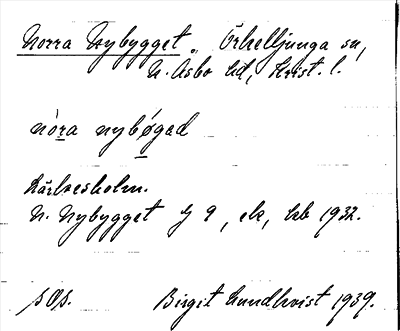 Norra Nybygget „ Örkelljunga sn,
N. Åsbo hd, Krist. l.
nòra nybǿgad
Kärleksholm.
N. Nybygget G 9, ek, kb 1932.
s Os.
Birgit Lundkvist 1939.